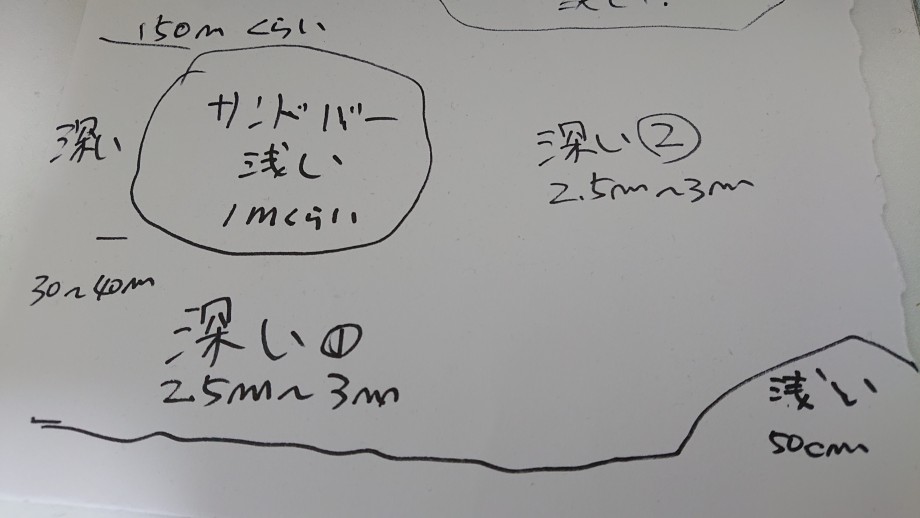 150mくらい
深い
サンドバー
浅い
1mくらい
深い②
2.5m~3m
30~40m
深い①
2.5m~3m
浅い
50cm